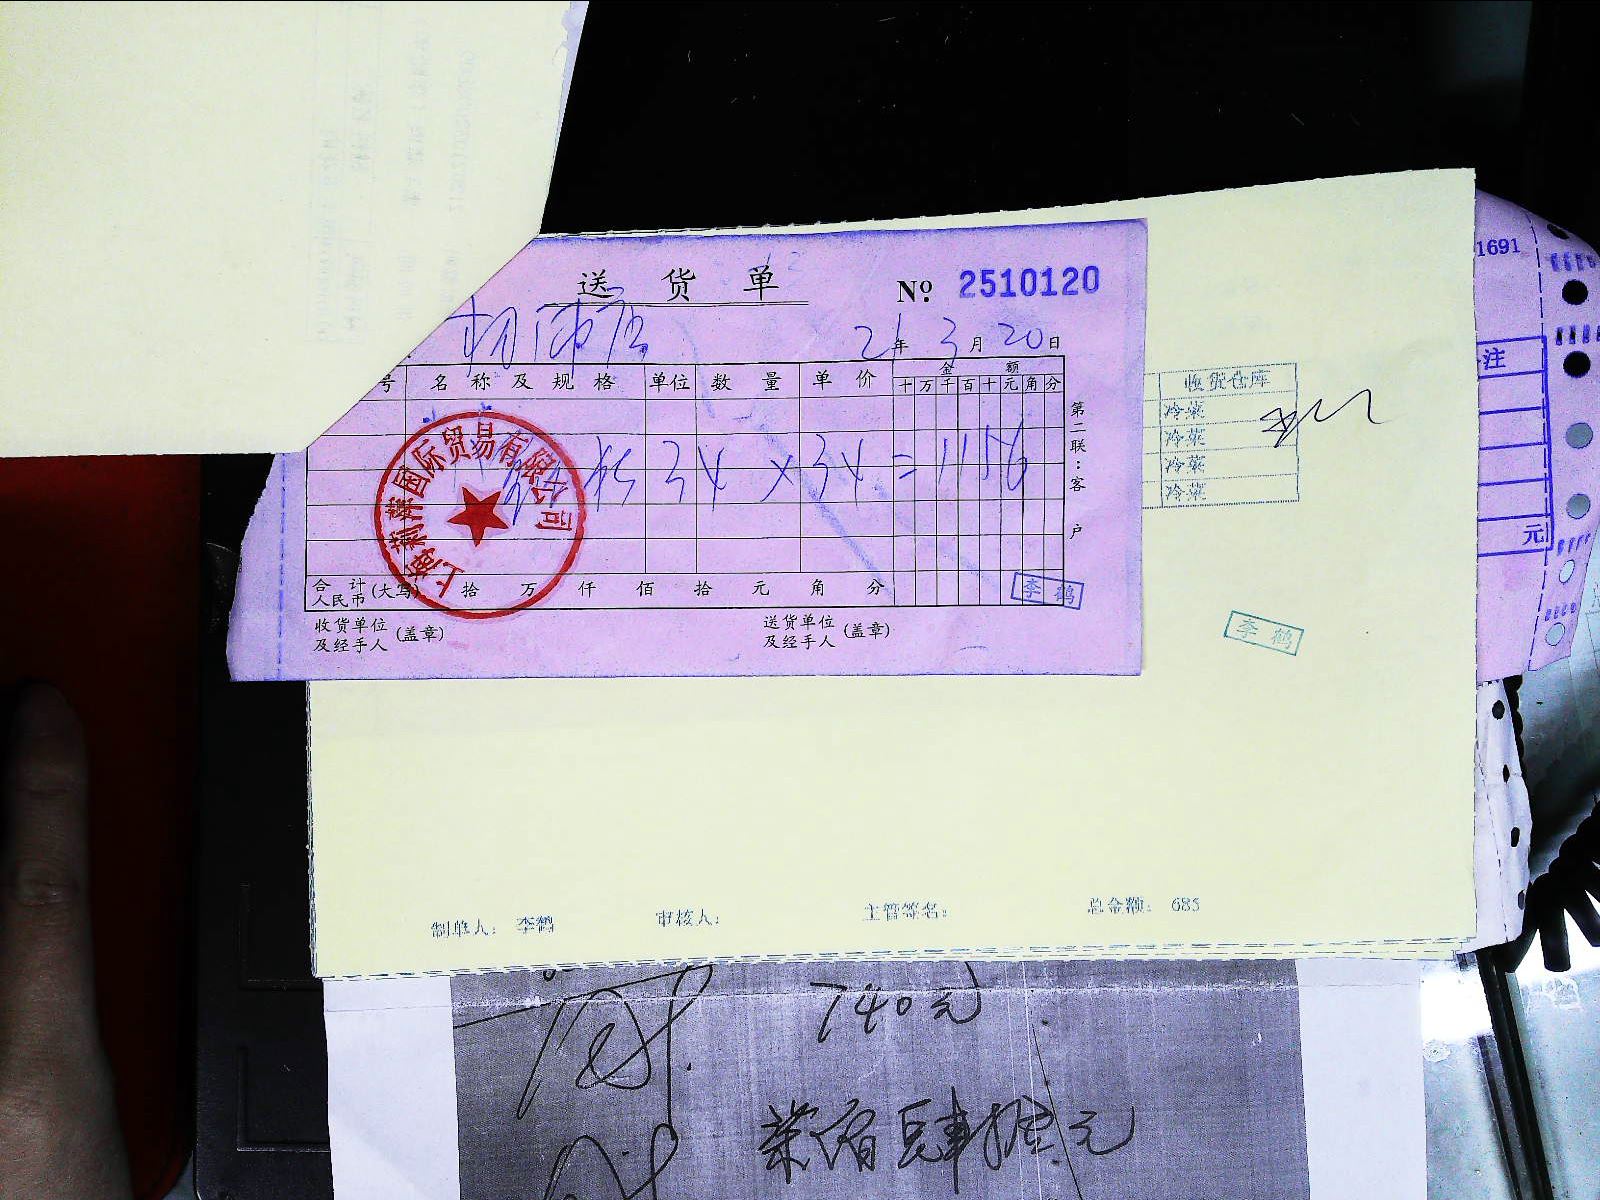 送 货 单 No 2510120
21年 3月 20日
号 名称及规格 单位 数量 单价 金额
十万千百十元角分
34 × 34 = 1156
上海 国际贸易有限公司
合计 人民币 (大写) 拾 万 仟 佰 拾 元 角 分
李鹤
收货单位及经手人 (盖章) 送货单位及经手人 (盖章)
第二联：客户
收货仓库
冷菜
冷菜
冷菜
冷菜
李鹤
1691
注
元
制单人： 李鹤 审核人： 主管签名： 总金额： 685
740元
柒佰肆拾元